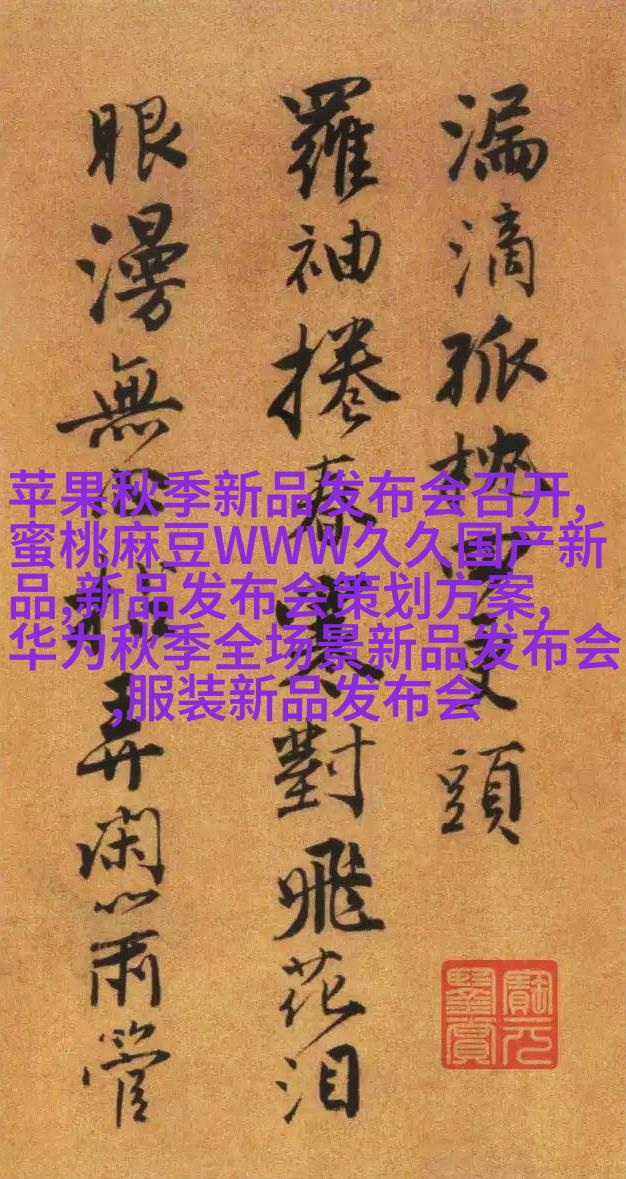 漏滴孤頭
羅袖捲春寒對飛花泪
眼漫無弄閑心兩管
苹果秋季新品发布会召开,
蜜桃麻豆WWW久久国产新
品,新品发布会策划方案,
华为秋季全场景新品发布会
,服装新品发布会